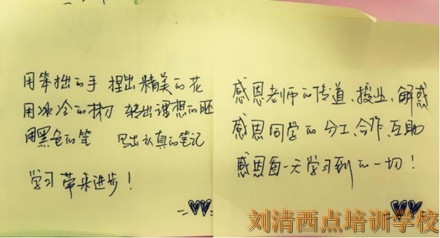 用笨拙的手 捏出精美的花
用冰冷的抹刀 抹出理想的胚
用黑色的笔 写出认真的笔记
学习带来进步!
感恩老师的传道、授业、解惑
感恩同学的分工、合作、互助
感恩每一天学习到的一切!
刘清西点培训学校